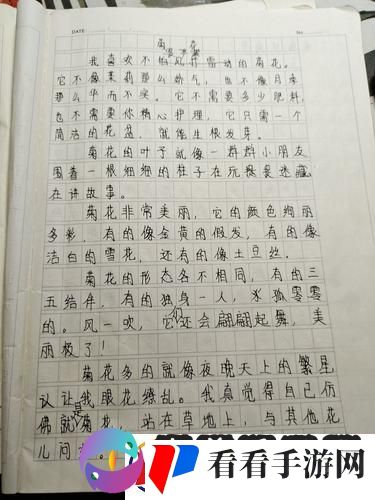 DATE
菊花
我喜欢不怕风打雷动的菊花。
它不像茉莉那么娇气，也不像月季
那么华而不实。它不需要多少肥料，
也不需要你精心护理，它只需一个
简洁的花盆，就能生根发芽。
菊花的叶子就像一群群小朋友
围着一根细细的柱子在玩畏畏迷藏
在讲故事。
菊花非常美丽，它的颜色绚丽
多彩，有的像金黄的假发，有的像
洁白的雪花，还有的像土豆丝。
菊花的形态各不相同，有的三
五结伴，有的独身一人，孤零零
的。风一吹，它们还会翩翩起舞，美
丽极了！
菊花多的就像夜晚天上的繁星
认让我眼花缭乱。我真觉得自己仿
佛就是菊花，站在草地上，与其他花
儿问
看看手游网